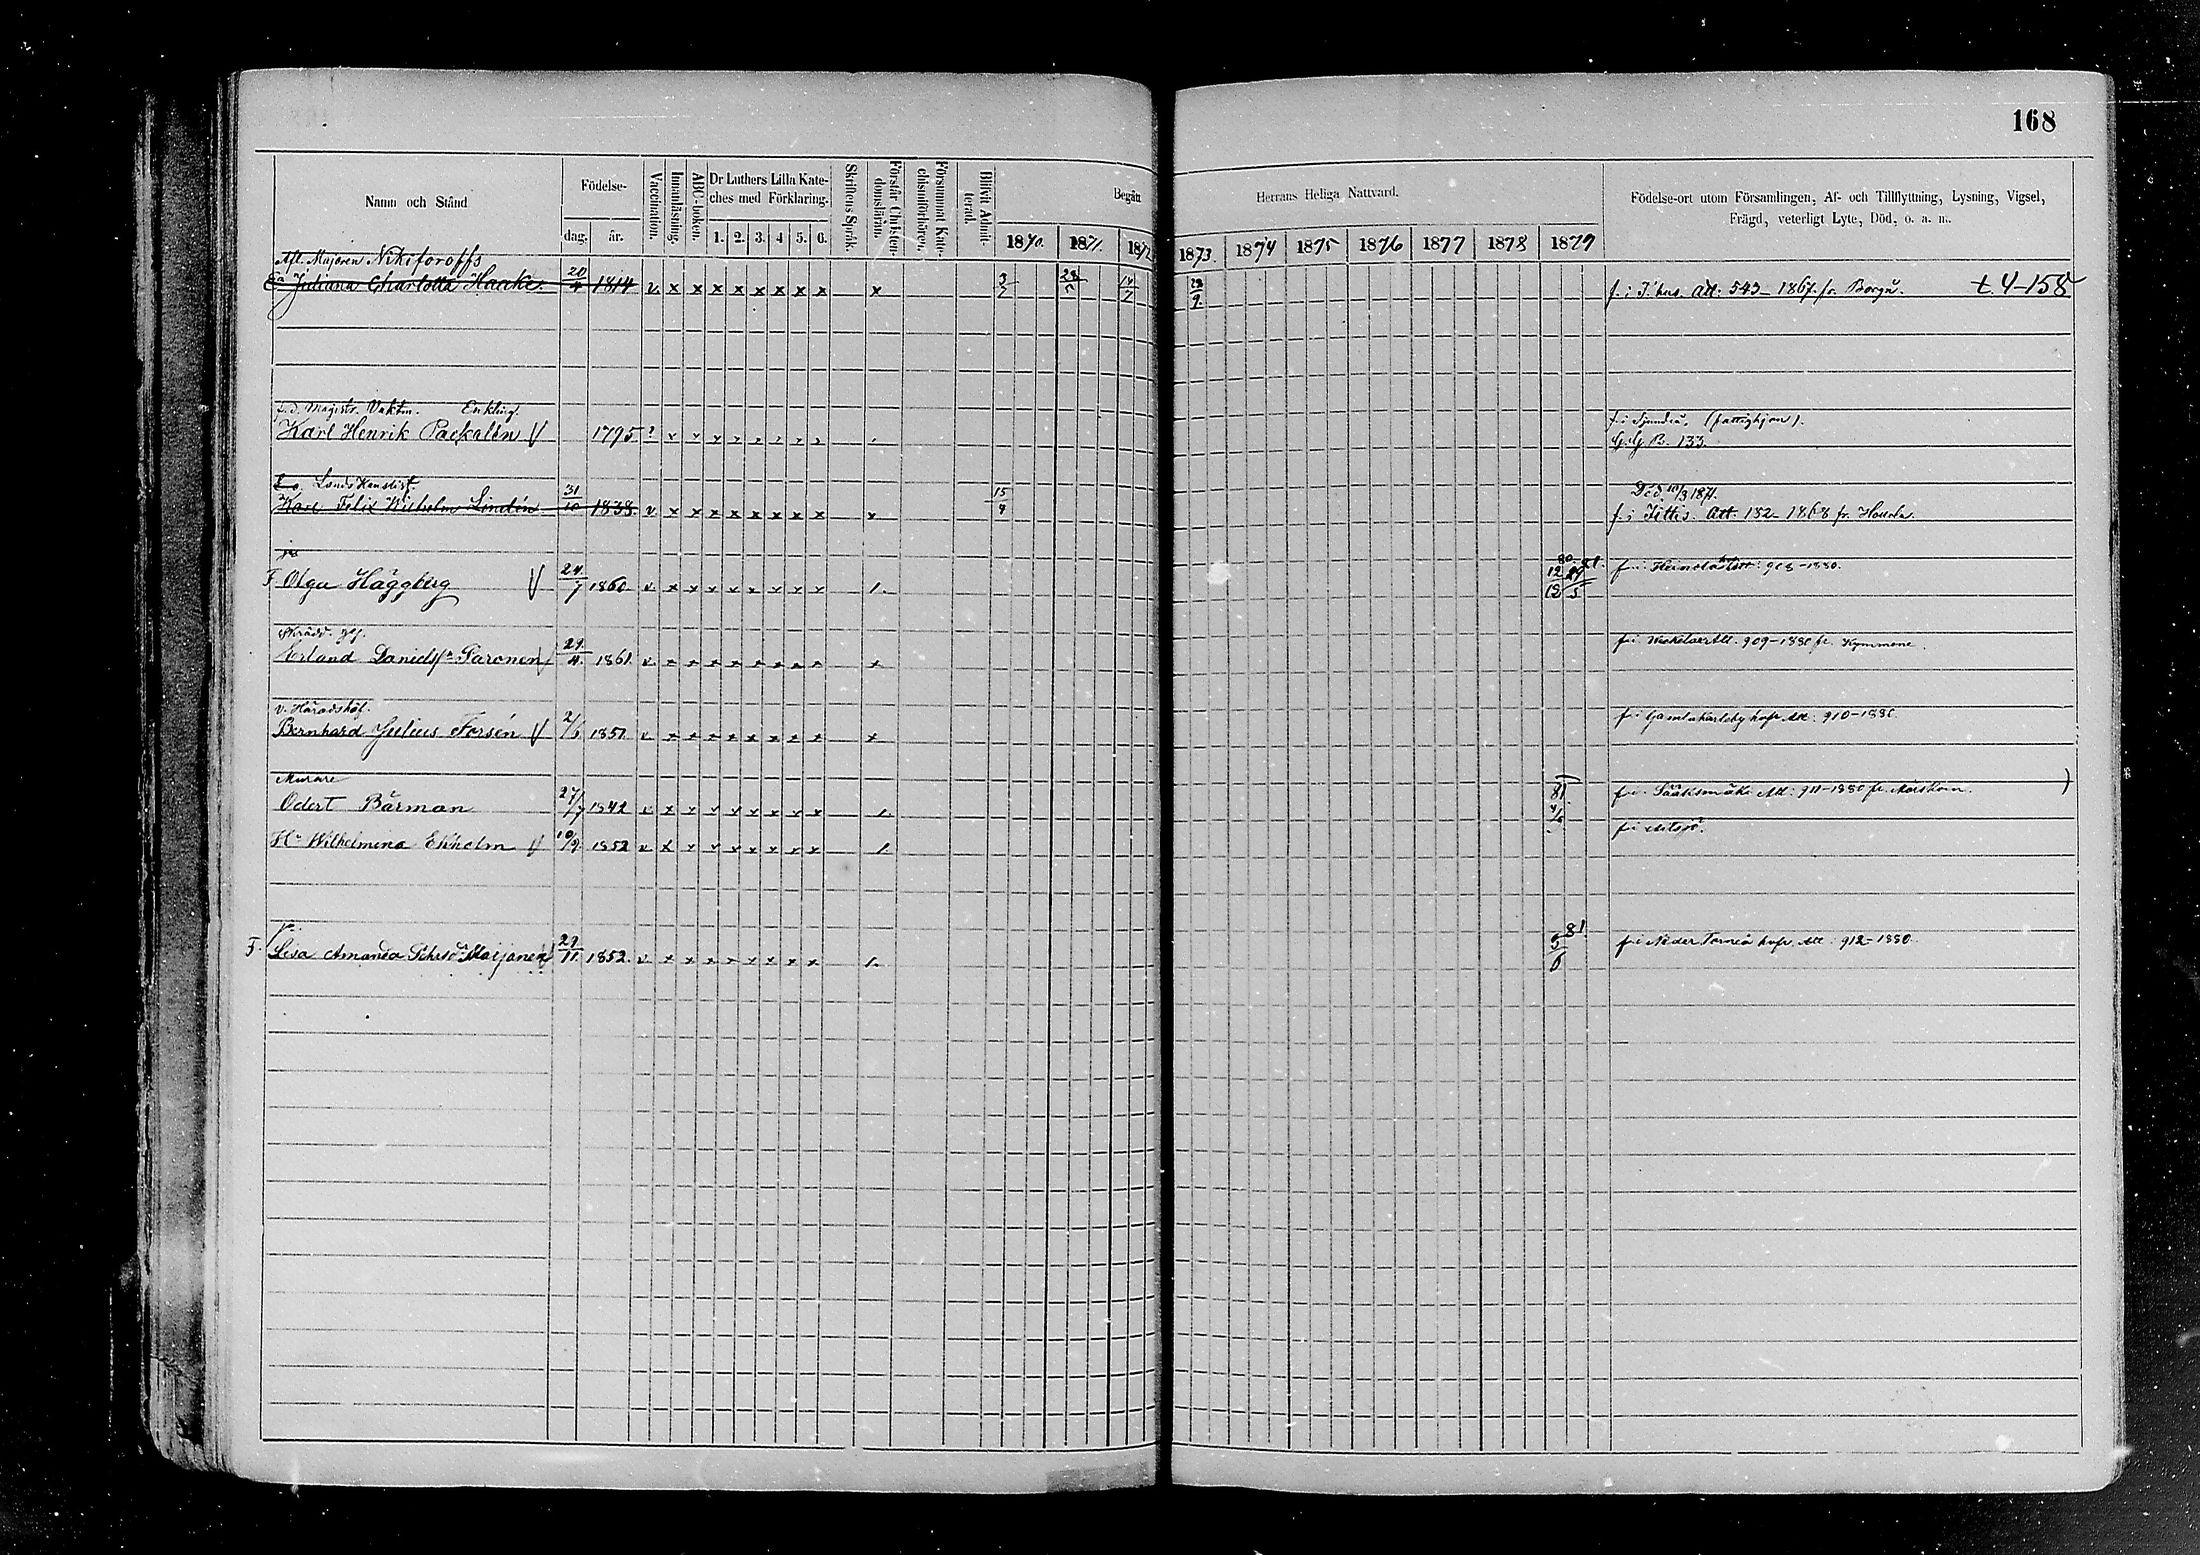 168
Namn och Stånd
Födelse-
dag.
år.
Vaccination.
Innanläsning.
ABC-boken.
Dr Luthers Lilla Kate-
ches med Förklaring.
1. 2. 3. 4 5. 6.
Skriftens Språk.
Förstår Christen-
domsläran.
Försummat Kate-
chismiförhören.
Blifvit Admit-
terad.
Begått
Herrans Heliga Nattvard.
1870. 1871. 1872 1873. 1874 1875 1876 1877 1878 1879
Födelse-ort utom Församlingen, Af- och Tillflyttning, Lysning, Vigsel,
Frägd, veterligt Lyte, Död, o. a. m.
Afl. Majoren Nikiforoffs
Ea Juliana Charlotta Haacke. 20/4 1814 v x x x x x x x x x 3/7 14/7 28/9 f. i T:hus. Att: 543-1867. fr. Borgå. t. 4-158
f. d. Magistr. Vaktm. Enkling.
Karl Henrik 1795 f. i Sjundeå, (fattighjon).
133.
Karl Felix Wilhelm Lindén 31/10 1838. v x x x x x x x x x 15/9
Död 10/3 1871.
f. i Jittis. Att: 152-1868 fr.
F Olga Häggberg 24/7 1860 v x x x x x x x x 1. 80. 12/12 f. i 908-1880.
Erland Daniels Paronen 1861. v x x x x x x x x x f. i Att. 909-1880 fr. Kymmene.
v. Häradshöf.
Bernhard Julius Forsén 2/6 1851. v x x x x x x x x x f. i Gamlakarleby Att: 910-1880.
Murare
Odert Bärman 27/7 1842 v x x x x x x x x 1. 81. f. i Sääksmäki Att: 911-1880 fr. Mörskom.
Hu Wilhelmina Ekholm 10/9. 1852 v x x x x x x x x 1. f. i
F. Lisa Amanda Maijanen 29/11. 1852. v x x x x x x x x 1. 81 5/6 f. i Neder Torneå Att: 912-1880.